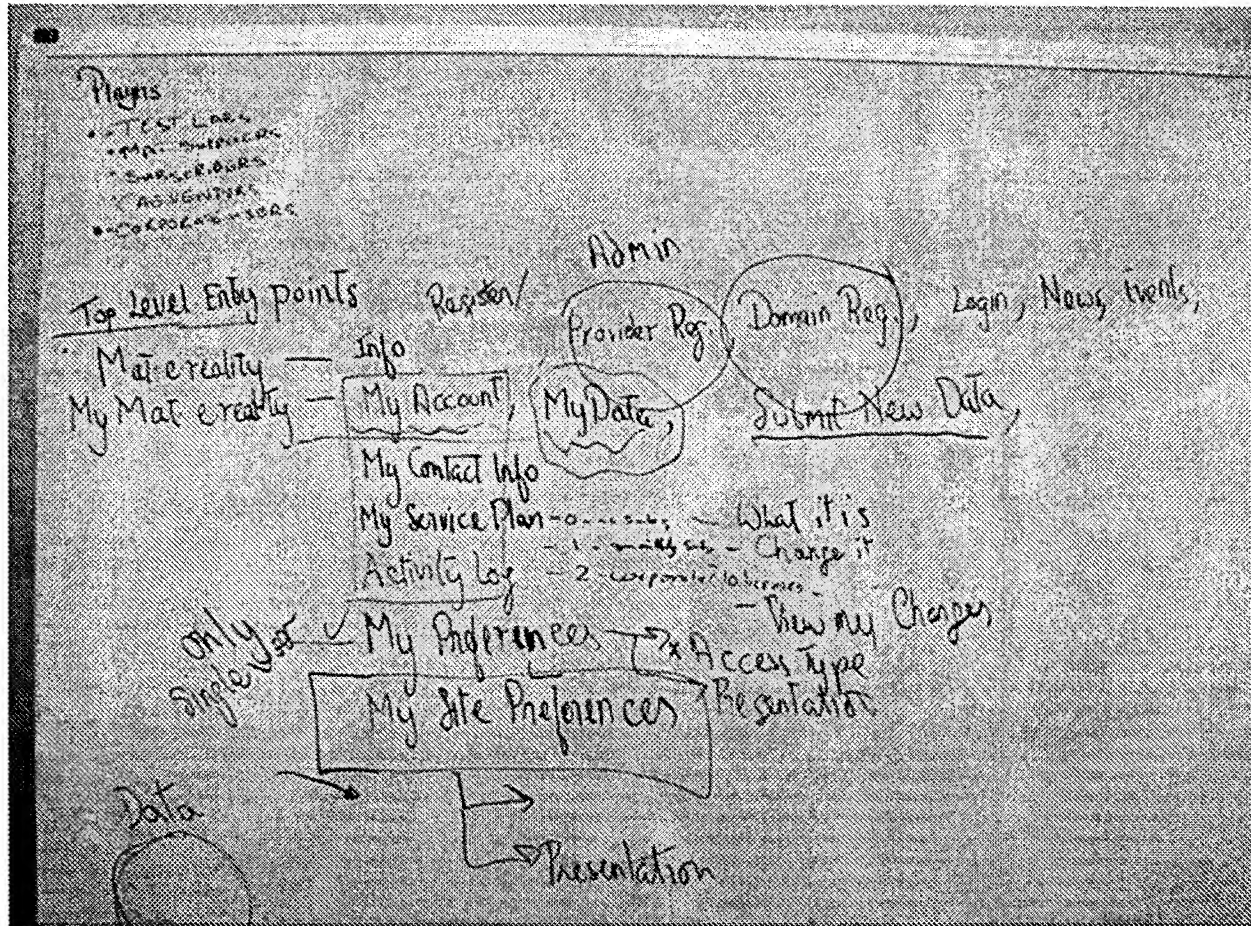 Players
• - TEST LABS
• MAT SUPPLIERS
• SUBSCRIBERS
CAD VENDORS
• - CORPORATE USERS
Admin
Top Level Entry points Register/ Provider Reg. Domain Reg., Login, News, Events,
Mat e reality — Info
My Mat e reality — My Account, My Data, Submit New Data,
My Contact Info
My Service Plan - 0 - — What it is
- 1 - - Change it
Activity Log - 2 - corporate
- View my Changes
only single
My Preferences Access Type
Presentation
My Site Preferences
Data
Presentation